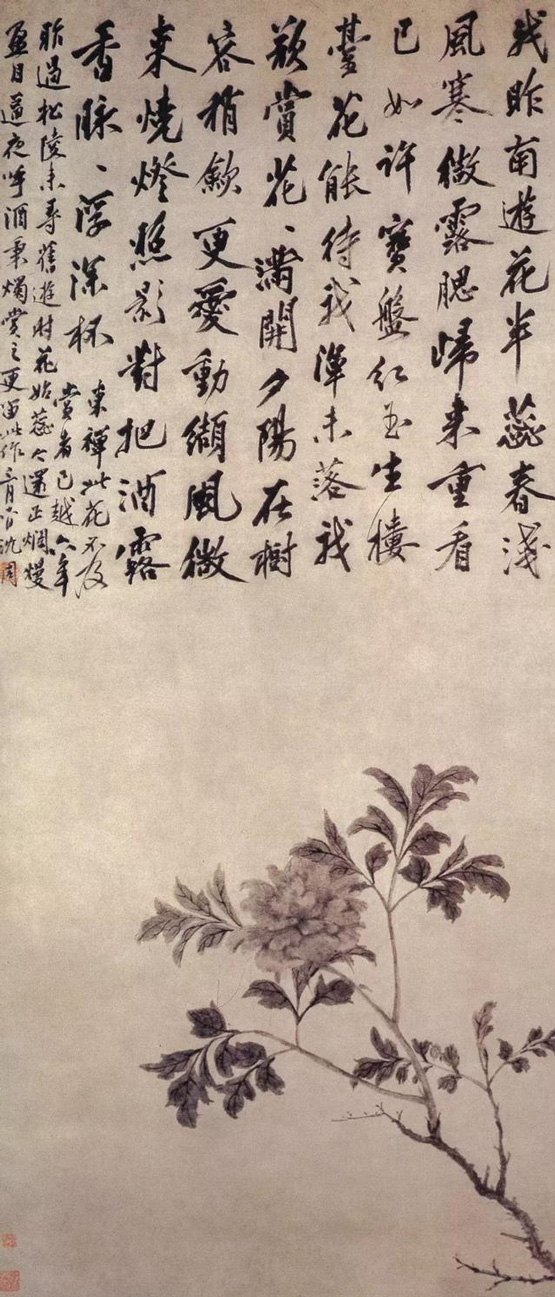 我昨南遊花半蕊春淺
風寒微露腮歸來重看
已如許寶盤紅玉生樓
臺花能待我渾未落我
欲賞花、滿開夕陽在樹
容稍斂更愛動纈風微
來燒燈照影對把酒露
香脉、浮深杯
東禪此花不及
賞者已越六年
昨過松陵未尋舊遊時花始蕊今還正爛熳
盈目逼夜呼酒秉燭賞之更留此作 沈周